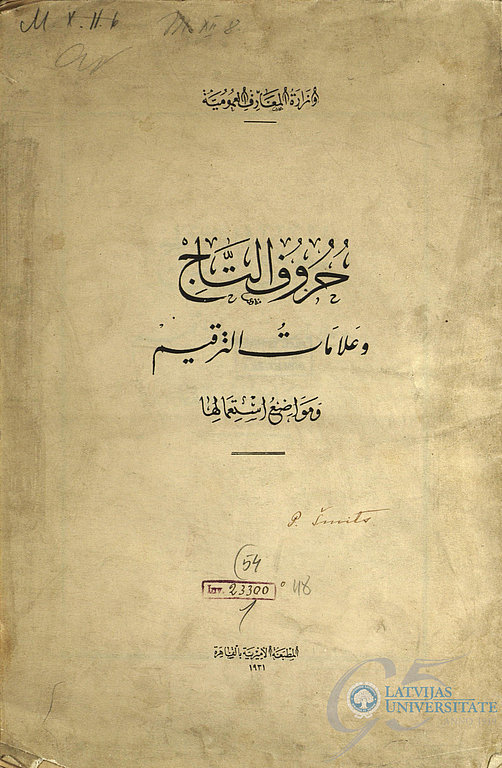 M. X. H. b
وزارة المعارف العمومية
حُرُوفُ التَّاجِ
وعَلامَاتُ الترقيم
ومَوَاضِعُ اسْتِعمالِها
P. Šmits
54
Inv. 23300
48
1
المطبعة الأميرية بالقاهرة
١٩٣١
95
LATVIJAS
UNIVERSITATE